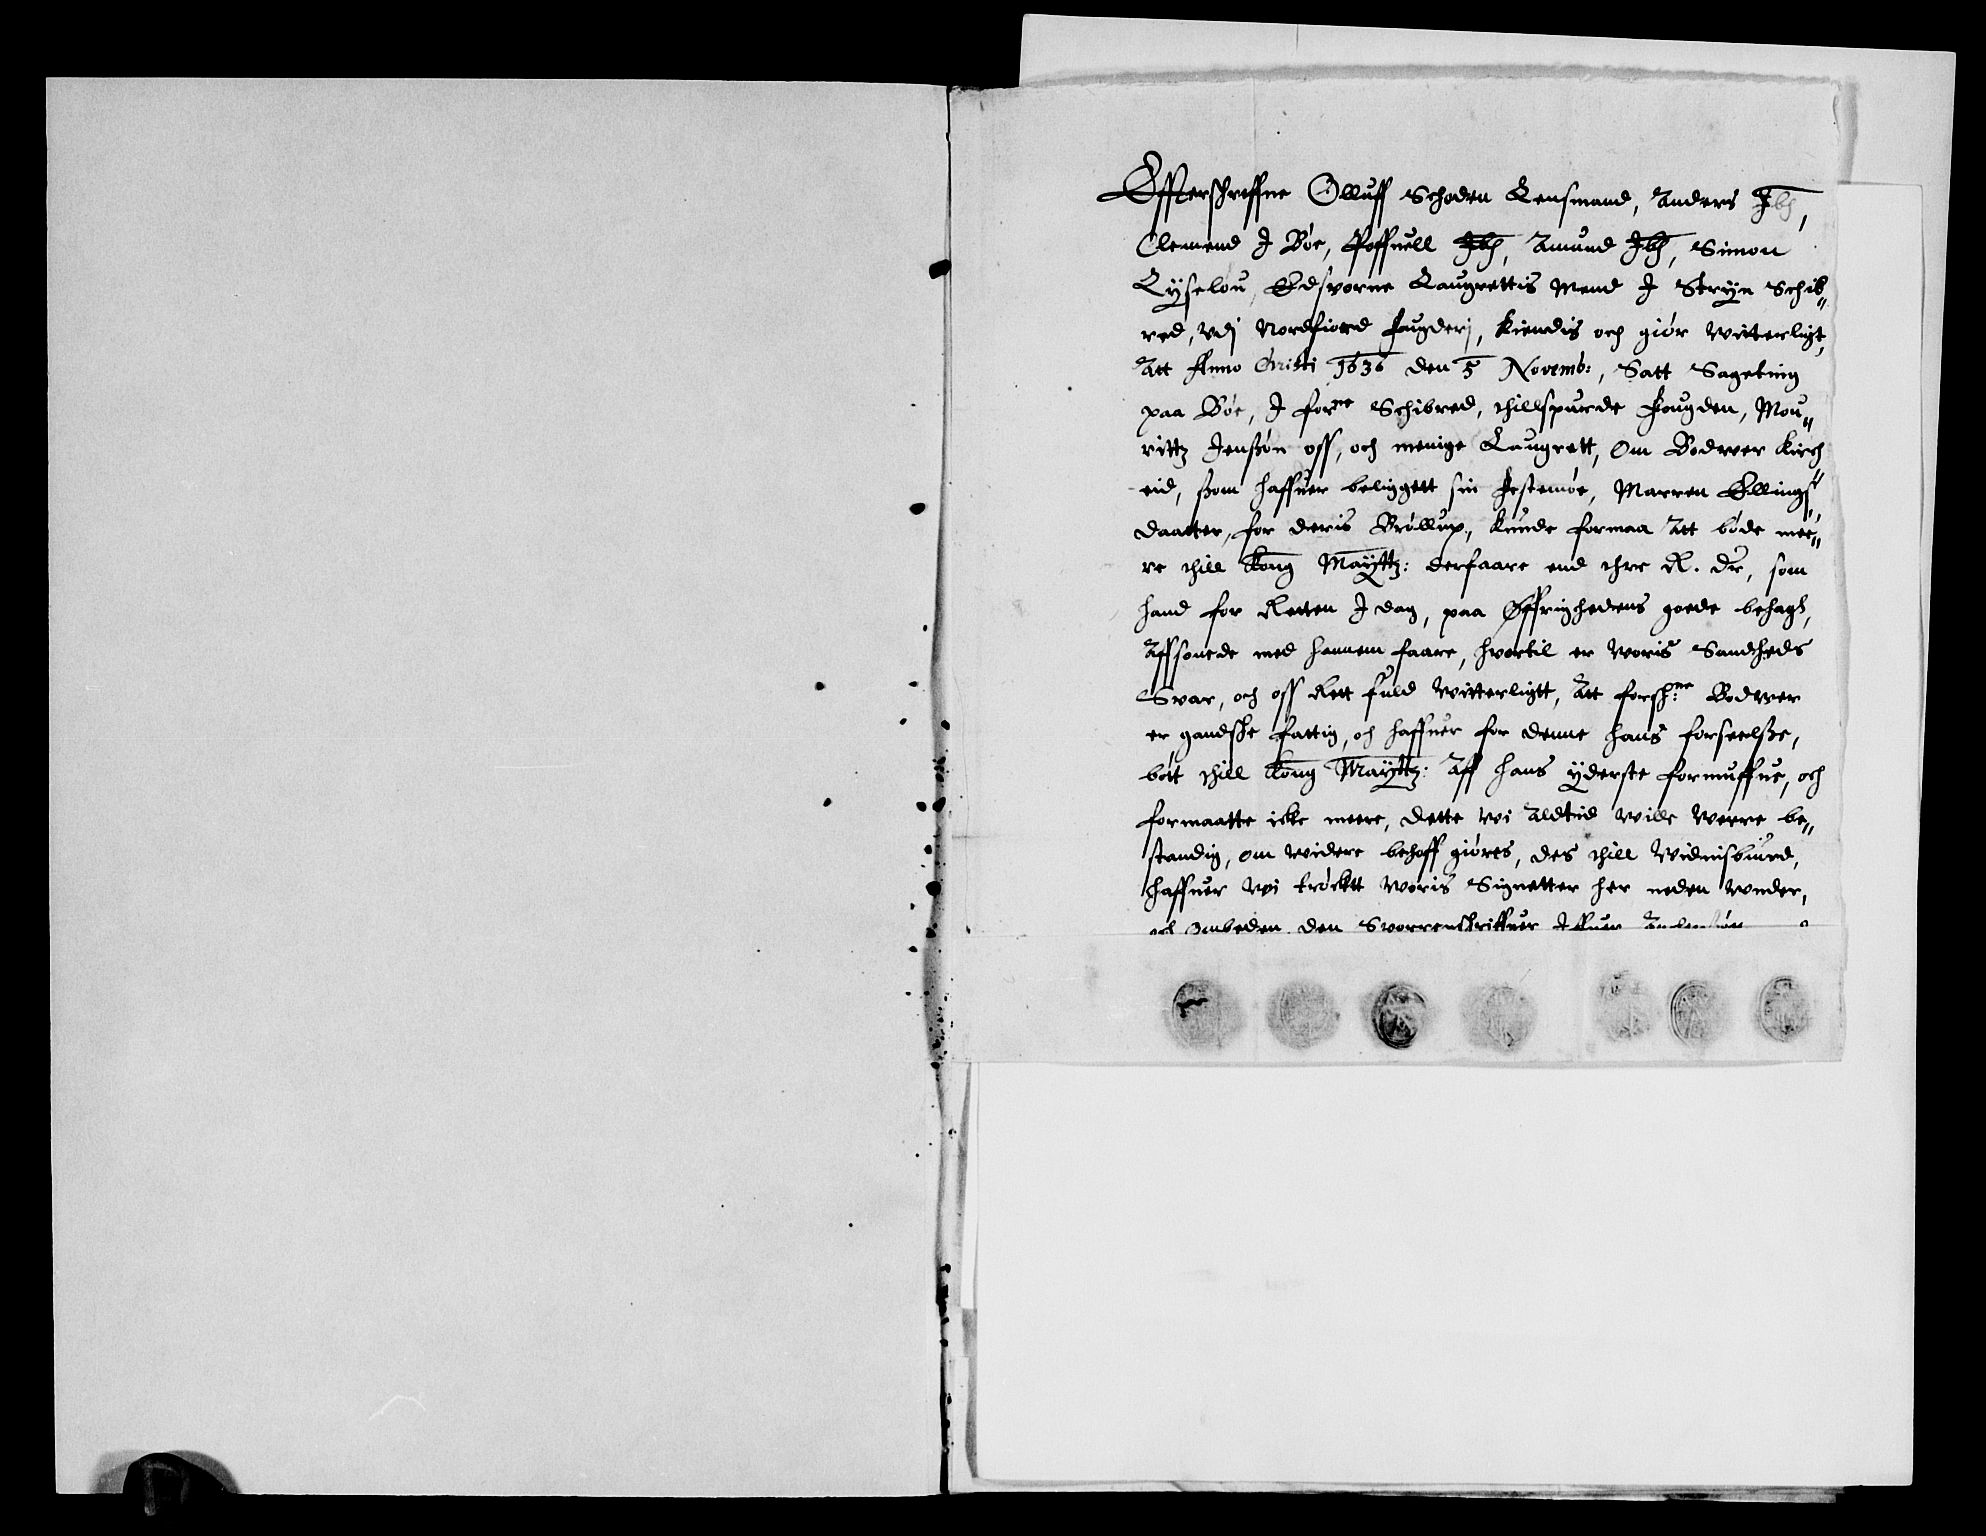 Effterschreffne Olluff Schoden Lensmand, Anders Ibꝫ,
Clemend I Böe, Poffuell Ibꝫ, Amund Ibꝫ, Simon
Lÿselou, Edsvorne Laugrettis Mend I Strÿn Schib„
red, vdj Nordfiord fougderj, Kiendis och giör witterligt,
Att Anno Christi 1636 den 5 Novemb:, Satt Sageting
paa Böe, I forne Schibred, thillspurde fougden, Mou„
rittz Jenßön oss, och menige Laugrett, Om Bodwer Kirch„
eid, ßom haffuer beliggett sin festemöe, Marren Ellings„
daatter, for deris Bröllup, kunde formaa Att böde mee„
re thill Kong Maÿttz: derfaare end thre R. dr, som
hand for Retten I dag, paa Öffrighedens goede behagh,
Affsonede med hannem faare, hvortil er woris Sandheds
Svar, och oss Rett fuld witterligtt, Att forsch:ne Bodwer
er gandske fattig, och haffuer for denne hans forseelße,
bött thill Kong Maÿttz: Aff hans ÿderste formuffue, och
formaatte icke meere, dette wi Aldtid wille werre be„
standig, om widere behoff giöres, des thill Widnisbiurd,
haffuer wi tröcktt woris Signetter her neden wnder,
och Ombeden den Svorrenschriffuer Iffuer